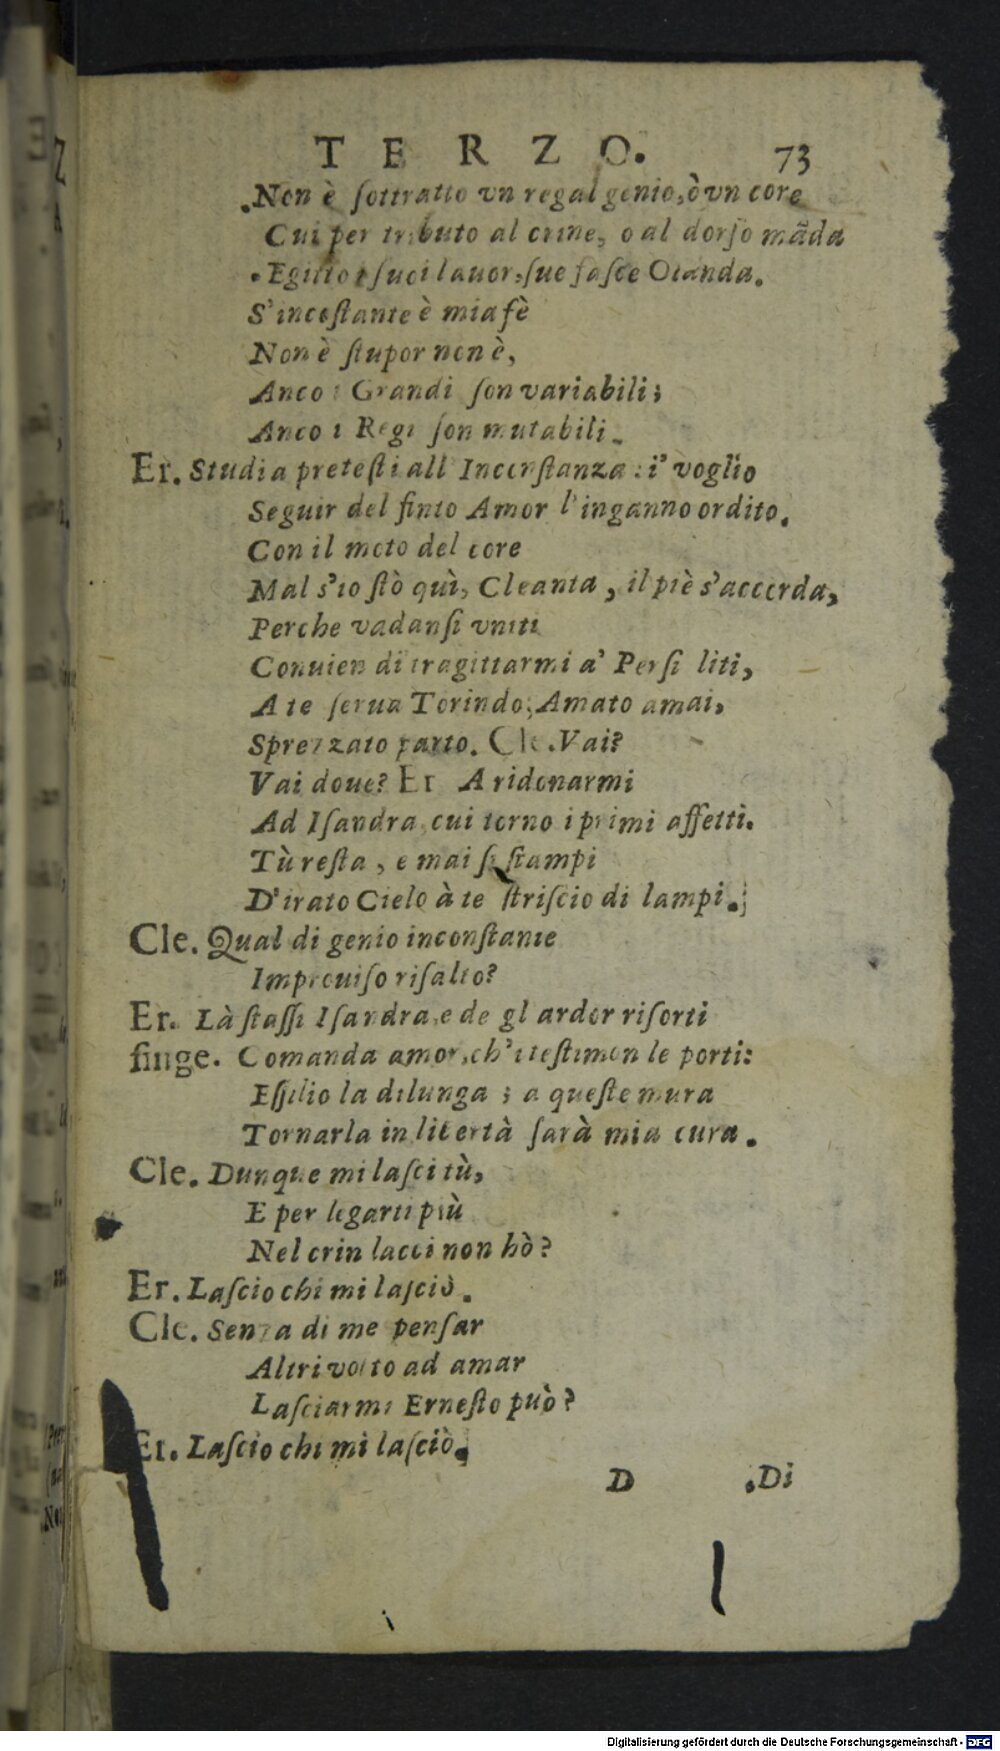 TERZO. 73
Non è sottratto vn regal genio, ò vn core
Cui per tributo al crine, o al dorso mãda
Egitto i suoi lauor, sue fasce Olanda.
S'incostante è mia fè
Non è stupor non è,
Anco i Grandi son variabili;
Anco i Regi son mutabili.
Er. Studia pretesti all Inconstanza: i' voglio
Seguir del finto Amor l'inganno ordito.
Con il moto del core
Mal s'io stò quì, Cleanta, il piè s'accorda,
Perche vadansi vniti
Conuien di tragittarmi a' Persi liti,
A te serua Torindo; Amato amai,
Sprezzato parto. Cle. Vai?
Vai doue? Er A ridonarmi
Ad Isandra, cui torno i primi affetti.
Tù resta, e mai si stampi
D'irato Cielo à te striscio di lampi.
Cle. Qual di genio inconstante
Improuiso risalto?
Er. Là stassi Isandra, e de gl ardor risorti
finge. Comanda amor, ch'i testimon le porti:
Essilio la dilunga; a queste mura
Tornarla in libertà sarà mia cura.
Cle. Dunque mi lasci tù,
E per legarti più
Nel crin lacci non hò?
Er. Lascio chi mi lasciò.
Cle. Senza di me pensar
Altri volto ad amar
Lasciarmi Ernesto può?
Er. Lascio chi mi lasciò.
D Di
Digitalisierung gefördert durch die Deutsche Forschungsgemeinschaft - DFG